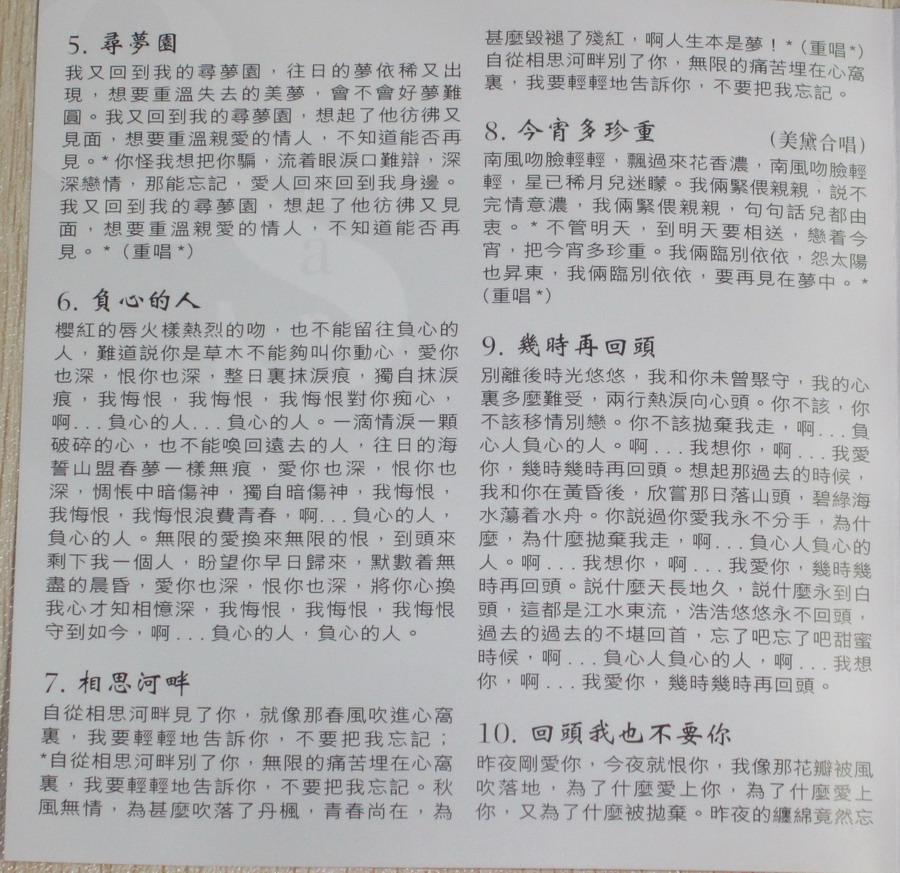 5. 尋夢園
我又回到我的尋夢園，往日的夢依稀又出
現，想要重溫失去的美夢，會不會好夢難
圓。我又回到我的尋夢園，想起了他彷彿又
見面，想要重溫親愛的情人，不知道能否再
見。*你怪我想把你騙，流着眼淚口難辯，深
深戀情，那能忘記，愛人回來回到我身邊。
我又回到我的尋夢園，想起了他彷彿又見
面，想要重溫親愛的情人，不知道能否再
見。*（重唱*）
6. 負心的人
櫻紅的唇火樣熱烈的吻，也不能留往負心的
人，難道説你是草木不能夠叫你動心，愛你
也深，恨你也深，整日裏抹淚痕，獨自抹淚
痕，我悔恨，我悔恨，我悔恨對你痴心，
啊...負心的人...負心的人。一滴情淚一顆
破碎的心，也不能喚回遠去的人，往日的海
誓山盟春夢一樣無痕，愛你也深，恨你也
深，惆悵中暗傷神，獨自暗傷神，我悔恨，
我悔恨，我悔恨浪費青春，啊...負心的人，
負心的人。無限的愛換來無限的恨，到頭來
剩下我一個人，盼望你早日歸來，默數着無
盡的晨昏，愛你也深，恨你也深，將你心換
我心才知相憶深，我悔恨，我悔恨，我悔恨
守到如今，啊...負心的人，負心的人。
7. 相思河畔
自從相思河畔見了你，就像那春風吹進心窩
裏，我要輕輕地告訴你，不要把我忘記；
*自從相思河畔別了你，無限的痛苦埋在心窩
裏，我要輕輕地告訴你，不要把我忘記。秋
風無情，為甚麼吹落了丹楓，青春尚在，為
甚麼毀褪了殘紅，啊人生本是夢！*（重唱*）
自從相思河畔別了你，無限的痛苦埋在心窩
裏，我要輕輕地告訴你，不要把我忘記。
8. 今宵多珍重 （美黛合唱）
南風吻臉輕輕，飄過來花香濃，南風吻臉輕
輕，星已稀月兒迷矇。我倆緊偎親親，説不
完情意濃，我倆緊偎親親，句句話兒都由
衷。*不管明天，到明天要相送，戀着今
宵，把今宵多珍重。我倆臨別依依，怨太陽
也昇東，我倆臨別依依，要再見在夢中。*
（重唱*）
9. 幾時再回頭
別離後時光悠悠，我和你未曾聚守，我的心
裏多麼難受，兩行熱淚向心頭。你不該，你
不該移情別戀。你不該拋棄我走，啊...負
心人負心的人。啊...我想你，啊...我愛
你，幾時幾時再回頭。想起那過去的時候，
我和你在黃昏後，欣嘗那日落山頭，碧綠海
水蕩着水舟。你説過你愛我永不分手，為什
麼，為什麼拋棄我走，啊...負心人負心的
人。啊...我想你，啊...我愛你，幾時幾
時再回頭。説什麼天長地久，説什麼永到白
頭，這都是江水東流，浩浩悠悠永不回頭，
過去的過去的不堪回首，忘了吧忘了吧甜蜜
時候，啊...負心人負心的人，啊...我想
你，啊...我愛你，幾時幾時再回頭。
10. 回頭我也不要你
昨夜剛愛你，今夜就恨你，我像那花瓣被風
吹落地，為了什麼愛上你，為了什麼愛上
你，又為了什麼被拋棄。昨夜的纏綿竟然忘